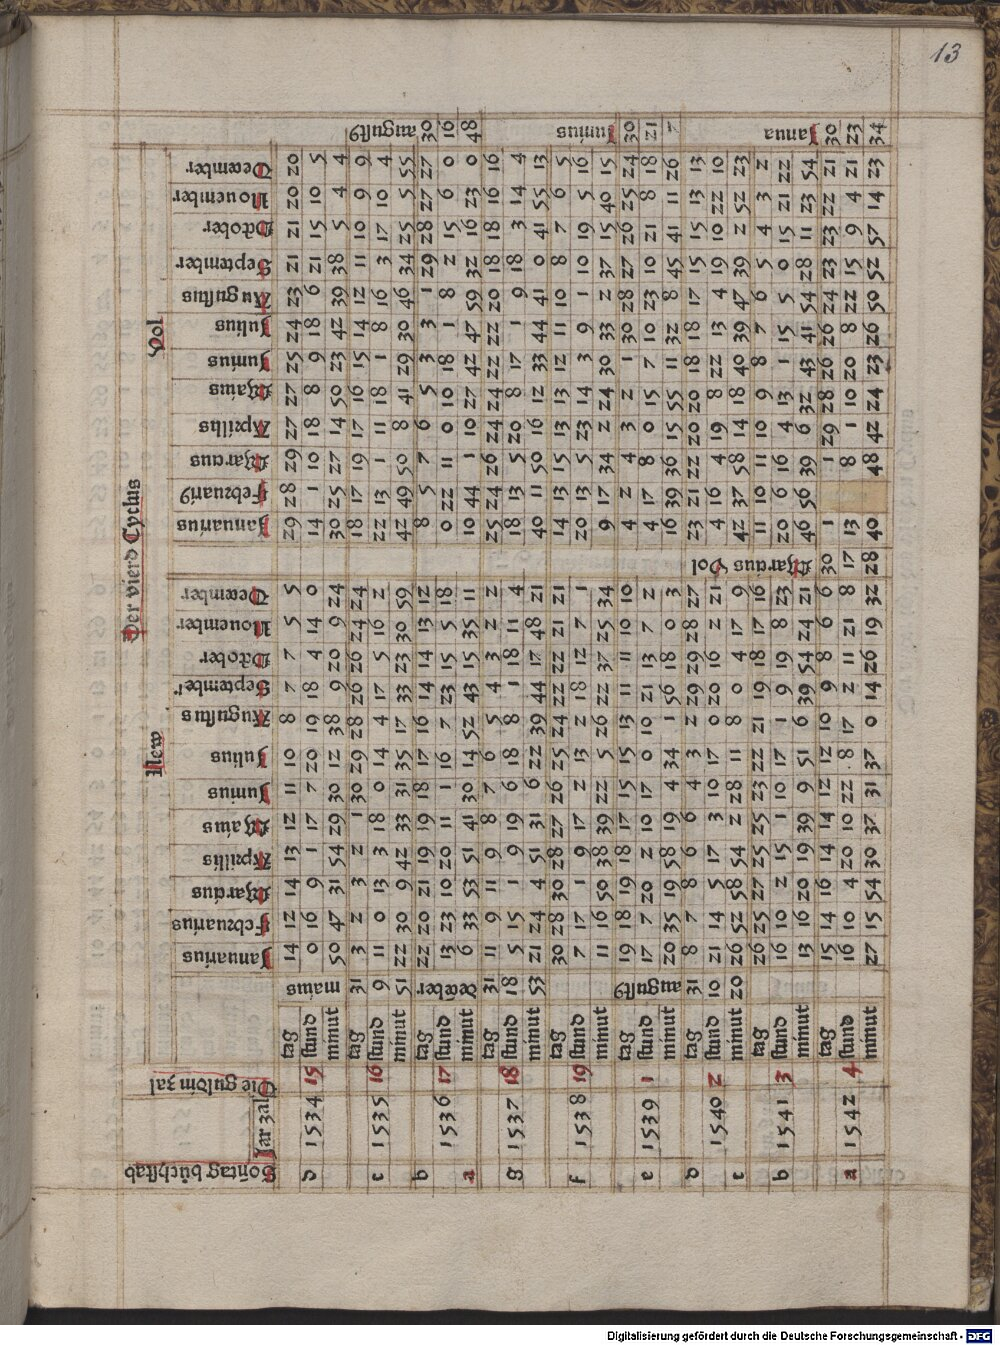 13
Der vierd Cyclus
New Vol
Sontag buchstab Jar zal Die guldin zal Januarius Februarius Marcius Aprilis Maius Junius Julius Augustus September October November December Januarius Februari9 Marcius Aprilis Maius Junius Julius Augustus September October November December
tag 14 12 14 13 12 11 10 8 7 7 5 5 29 28 29 27 27 25 24 23 21 21 20 20
d 1534 15 stund maius 0 16 9 1 17 7 20 19 18 4 14 0 14 1 10 18 8 9 18 6 21 15 10 5
minut 50 47 31 54 29 30 12 38 9 20 9 24 30 25 27 14 50 23 42 39 38 5 4 4
tag 31 3 2 3 2 1 30 29 28 26 26 24 24 18 17 19 17 16 15 14 12 11 10 9 9
c 1535 16 stund 9 11 0 13 3 18 0 14 4 17 5 16 2 22 13 1 11 18 1 8 16 3 17 10 4 august9
minut 51 22 30 9 42 33 31 35 17 33 23 30 59 42 49 50 8 41 29 30 46 34 25 5 55
b tag 22 20 21 19 19 18 17 16 14 14 13 12 8 5 7 6 5 3 3 1 29 28 27 27 30
1536 17 stund december 13 23 10 20 11 1 16 7 23 15 5 18 0 22 11 0 10 18 1 8 2 15 6 0 16
a minut 6 33 53 51 41 30 14 52 43 15 35 11 10 44 1 10 27 42 47 59 32 16 23 0 48
tag 31 11 9 11 9 8 7 6 5 4 3 2 2 25 24 26 24 24 22 22 20 18 18 16 16
g 1537 18 stund 18 5 15 1 9 19 6 18 8 1 18 11 4 18 13 5 20 8 17 1 9 18 3 14 4
minut 53 21 24 4 51 31 6 22 39 44 17 48 21 40 11 50 16 12 33 44 41 0 41 55 13
tag 30 28 30 28 27 26 25 24 22 22 21 21 14 13 15 13 13 12 11 10 8 8 6 5
f 1538 19 stund 7 17 1 9 17 2 13 2 18 12 7 1 20 13 5 23 14 3 9 1 10 19 5 16 Junius
minut 11 16 50 38 39 22 5 26 22 37 25 34 9 17 34 2 24 30 33 2 37 15 40 15
tag 19 18 19 18 17 15 15 13 11 11 10 10 4 2 4 3 2 1 30 28 27 26 25 24 30
e 1539 1 stund august9 17 7 20 2 10 17 0 10 21 13 7 2 4 17 8 0 15 7 10 23 10 21 8 18 21
minut 20 35 19 58 19 4 34 1 56 18 0 3 16 39 36 22 55 11 32 8 45 41 11 26 7
d tag 31 8 7 8 6 6 4 3 2 29 29 28 27 23 21 22 20 20 18 18 17 15 15 13 13
1540 2 stund 10 21 14 5 17 3 10 17 0 20 16 2 21 4 16 4 19 8 22 13 4 19 10 22 10
c minut 20 26 52 58 54 2 28 11 8 0 4 17 9 42 37 58 14 18 40 39 47 39 2 52 23
tag 26 25 27 25 25 23 22 21 19 18 17 16 11 10 11 10 9 8 7 6 5 4 3 2
b 1541 3 stund 16 10 2 15 1 10 17 1 9 19 8 23 Marcius Vol 20 6 16 4 13 1 15 5 0 15 21 22 Janua
minut 13 16 20 19 39 9 51 6 39 54 24 21 46 56 39 6 32 43 41 54 28 11 23 54
tag 15 14 16 14 14 12 12 10 9 8 6 6 30 1 1 29 28 26 26 24 23 23 22 21 30
a 1542 4 stund 16 10 4 20 10 22 8 17 2 11 21 8 17 13 8 1 10 20 8 22 15 9 4 21 23
minut 27 15 54 30 37 31 37 0 14 26 19 32 28 40 48 42 24 23 26 50 52 57 14 23 34
Digitalisierung gefördert durch die Deutsche Forschungsgemeinschaft - DFG